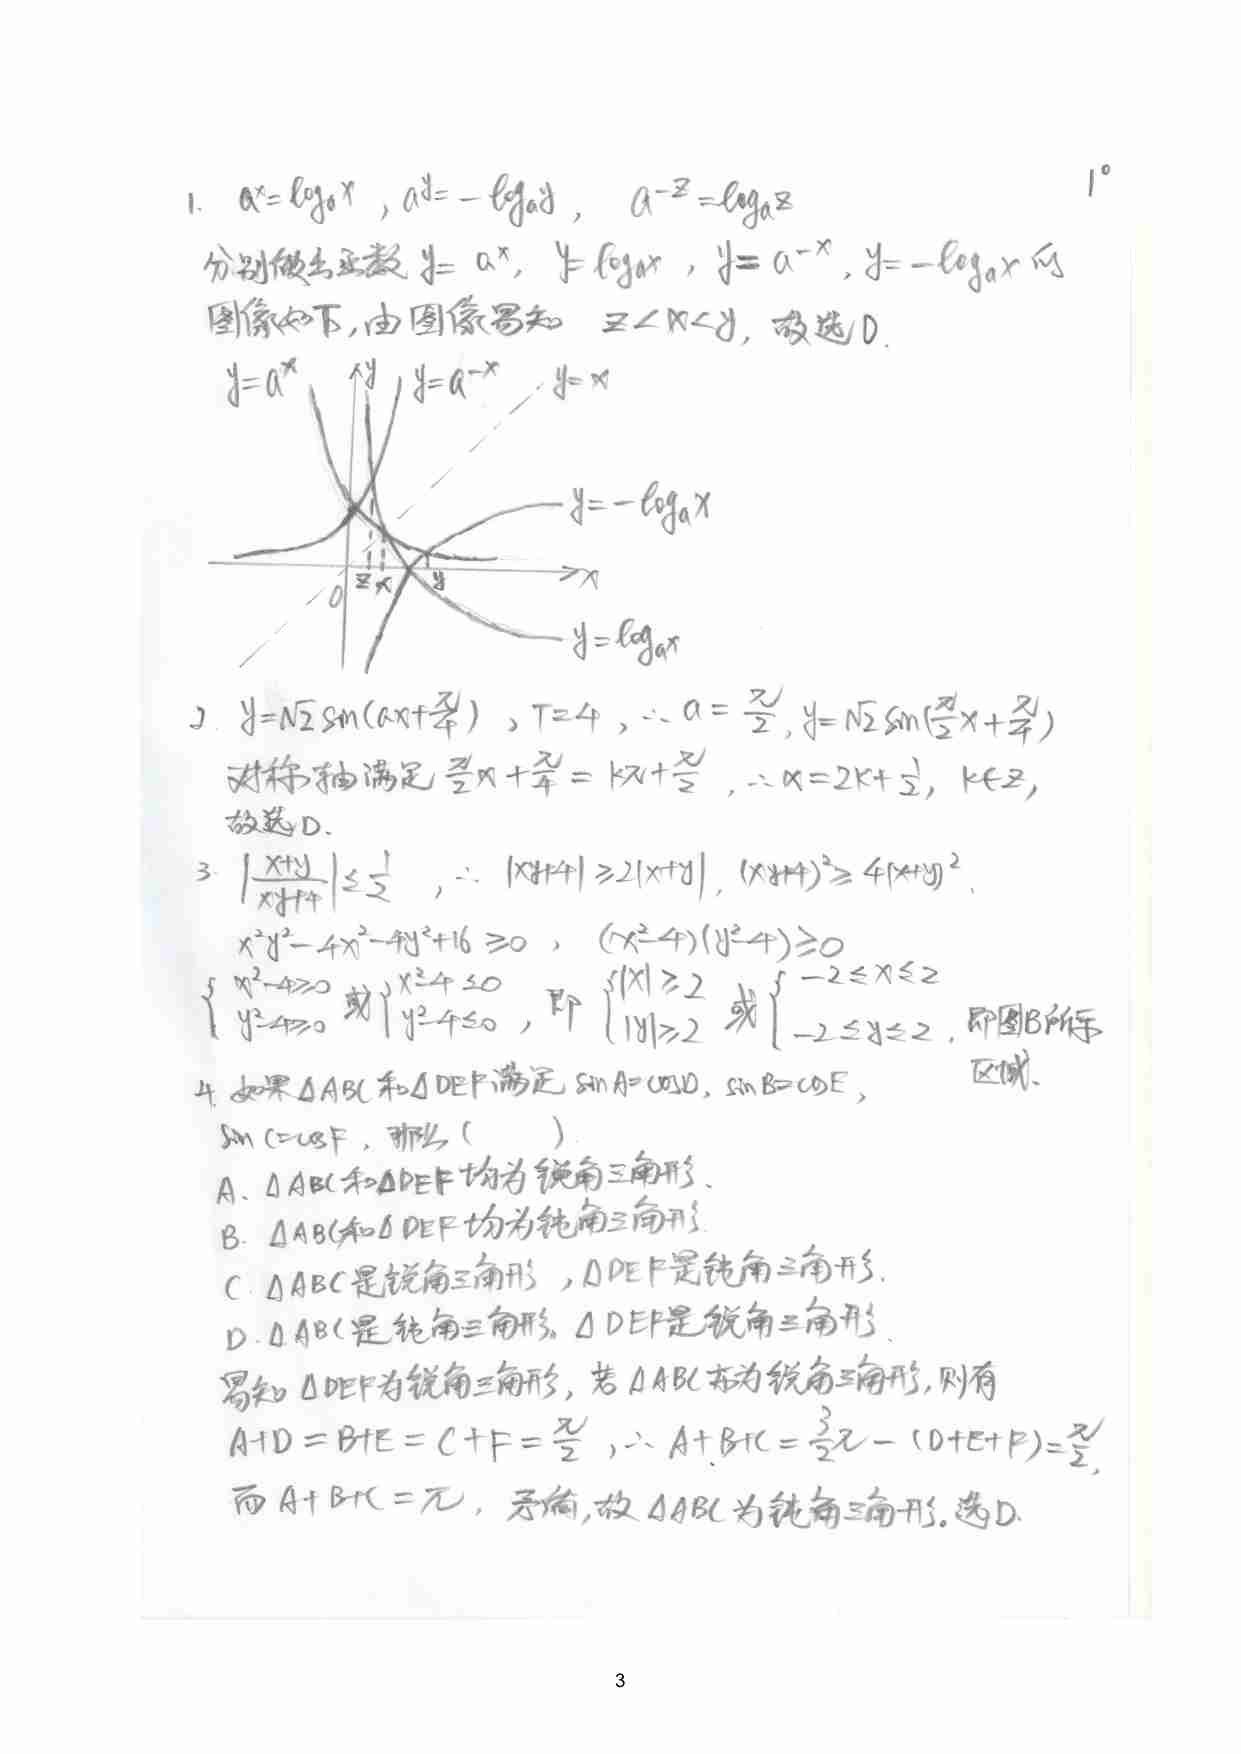 1°
1. aˣ=logₐx , aʸ=-logₐy, a⁻ᶻ=logₐz
分别做出函数 y=aˣ, y=logₐx , y=a⁻ˣ, y=-logₐx 的
图像如下,由图像易知 z<x<y, 故选D.
y=aˣ y y=a⁻ˣ y=x
y=-logₐx
O z x y x
y=logₐx
2. y=√2 sin(ax+π/4) , T=4 , ∴ a=π/2, y=√2 sin(π/2 x+π/4)
对称轴满足 π/2 x+π/4=kπ+π/2 , ∴x=2k+1/2, k∈Z,
故选D.
3. |(x+y)/(xy+4)|≤1/2 , ∴ |xy+4|≥2|x+y|, (xy+4)²≥4(x+y)².
x²y²-4x²-4y²+16≥0 , (x²-4)(y²-4)≥0
{x²-4≥0 y²-4≥0 或 {x²-4≤0 y²-4≤0 , 即 {|x|≥2 |y|≥2 或 {-2≤x≤2 -2≤y≤2 . 即图B所示
区域.
4. 如果△ABC和△DEF满足 sinA=cosD, sinB=cosE,
sinC=cosF , 那么( )
A. △ABC和△DEF均为锐角三角形.
B. △ABC和△DEF均为钝角三角形.
C. △ABC是锐角三角形 , △DEF是钝角三角形.
D. △ABC是钝角三角形. △DEF是锐角三角形.
易知△DEF为锐角三角形, 若△ABC亦为锐角三角形,则有
A+D=B+E=C+F=π/2 , ∴ A+B+C=3/2π-(D+E+F)=π/2,
而A+B+C=π, 矛盾,故△ABC为钝角三角形。选D.
3